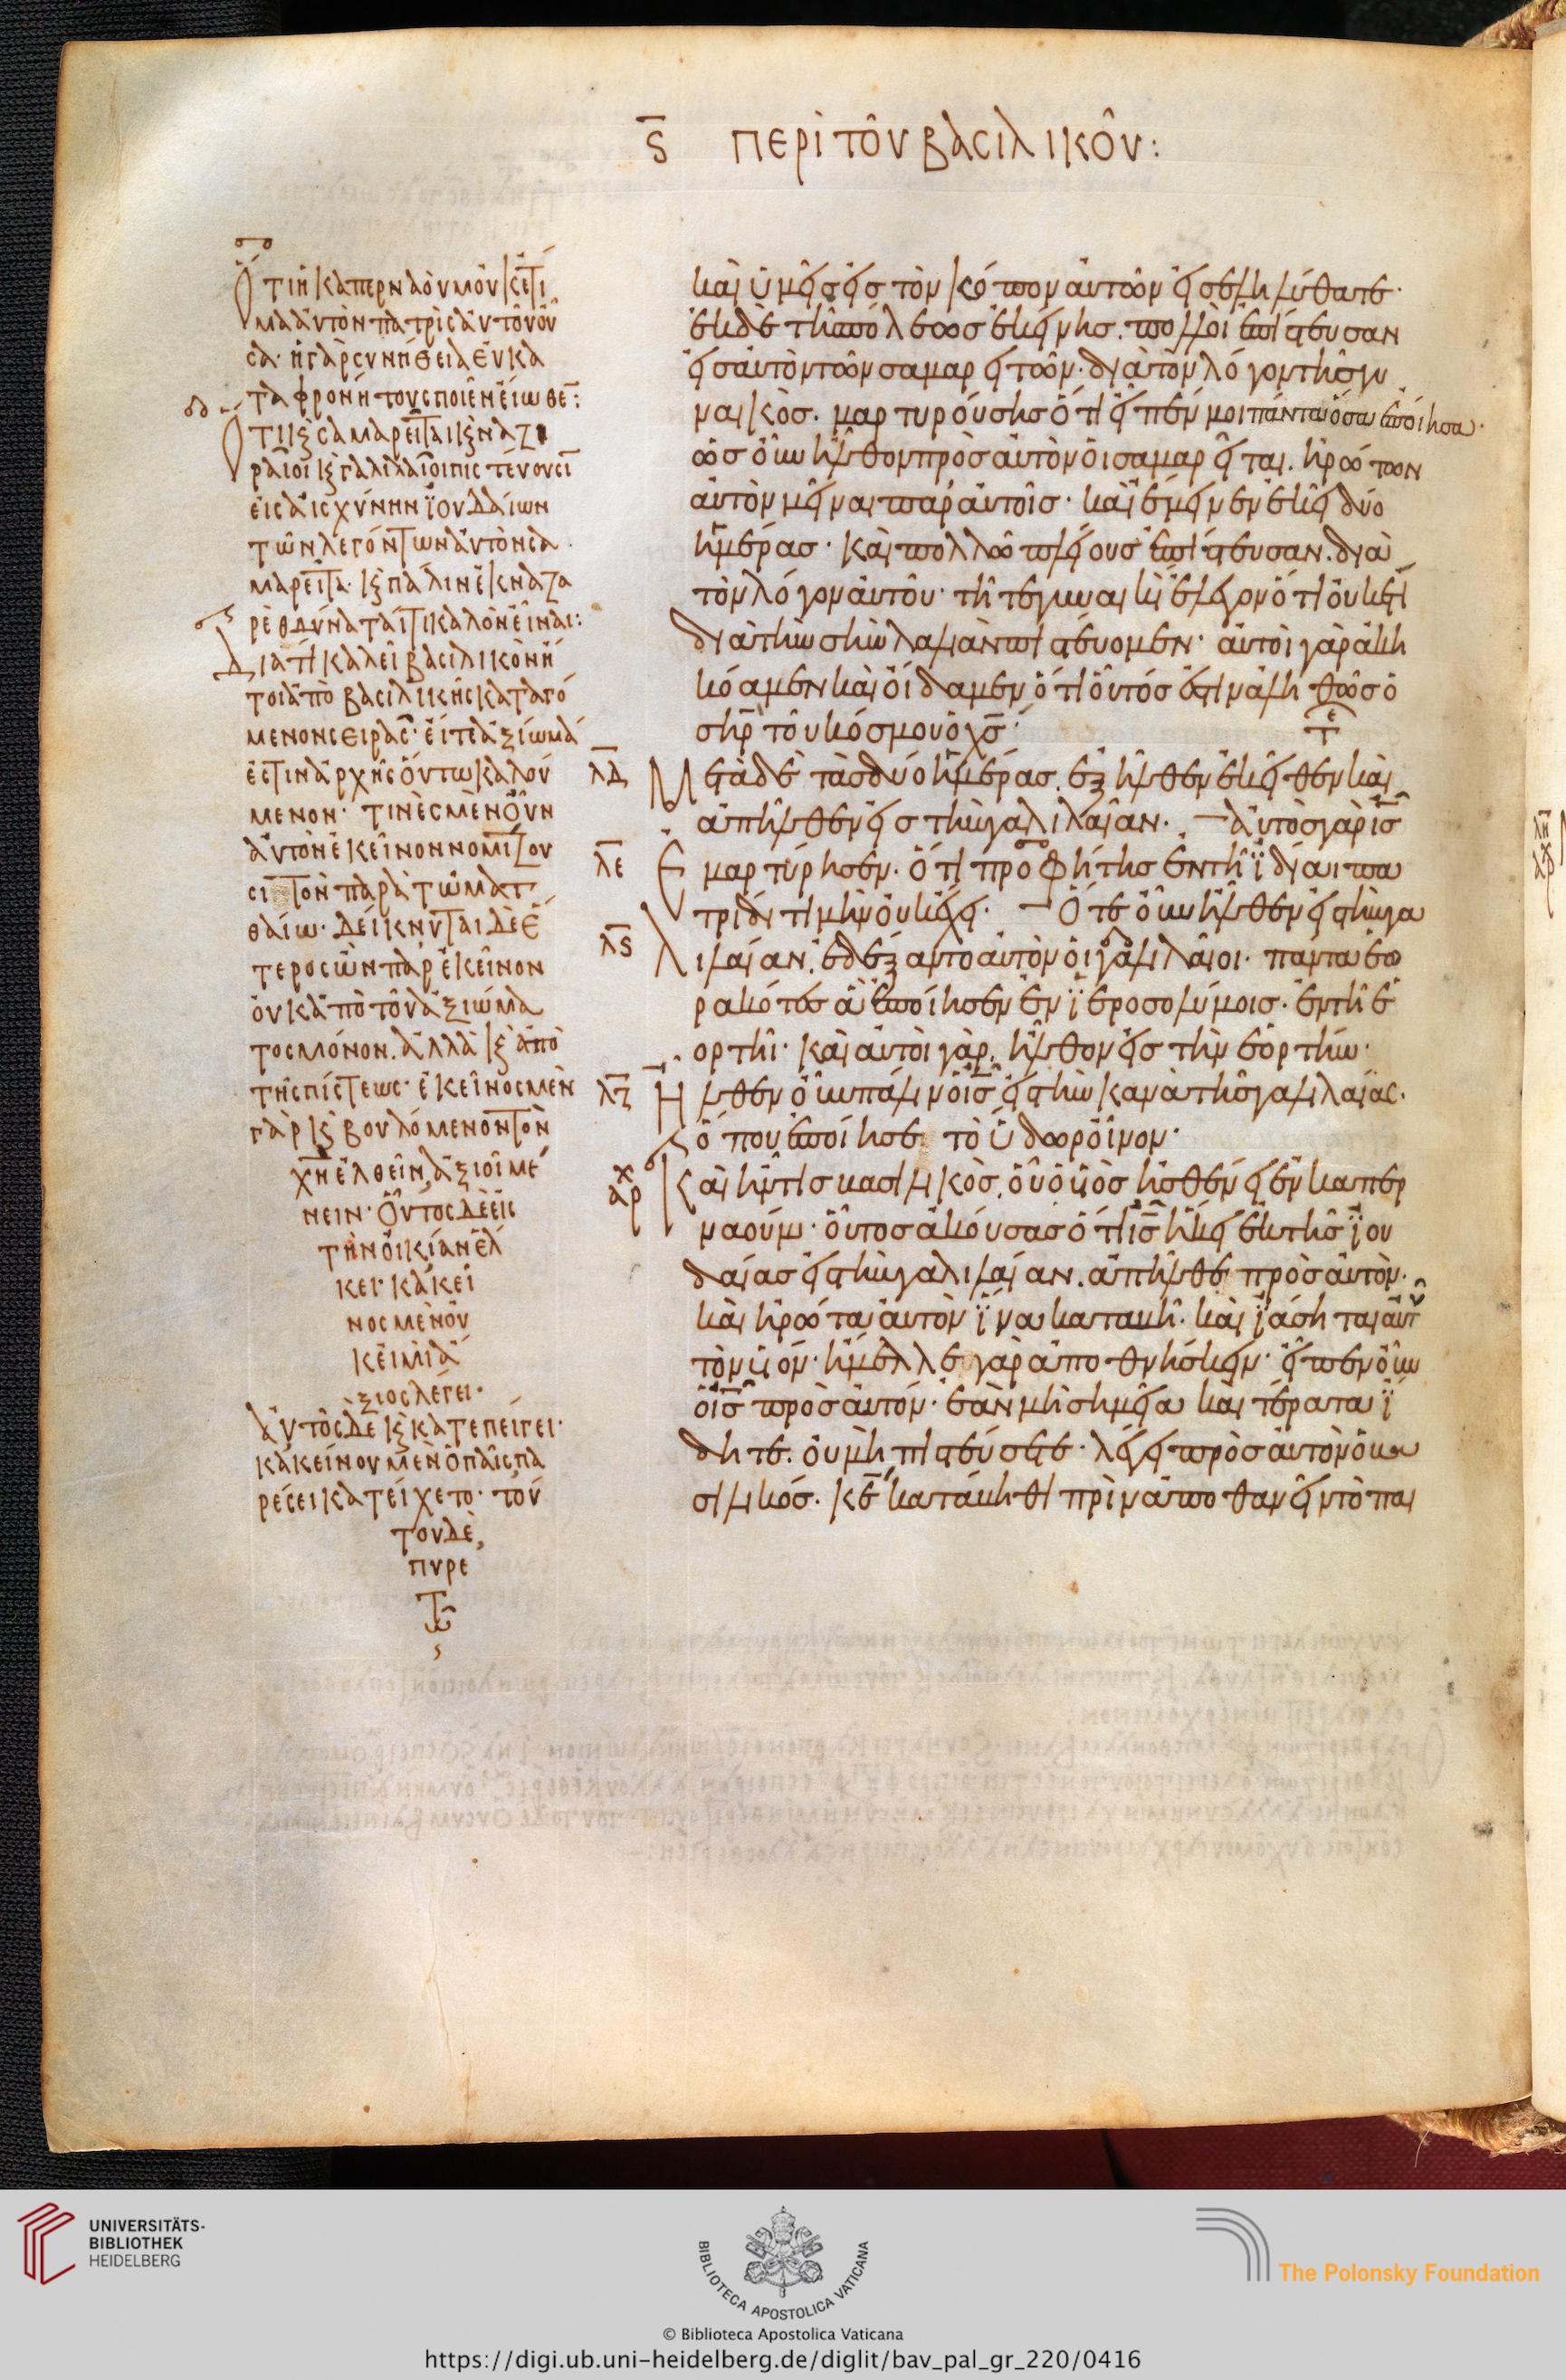 ς̄ περὶ τοῦ βασιλικοῦ:
Ὅτι ἡ καπερναοὺμ οὐκ ἐτί
μα αὐτὸν πατρὶς αὐτοῦ οὖ
σα· ἡ γὰρ συνήθεια εὐκα
ταφρονήτους ποιεῖν εἴωθε̄:
Ὅτι κ̀ σαμαρεῖται κ̀ ναζω
ραῖοι κ̀ γαλιλαῖοι πιστεύουσι
εἰς αἰσχύνην ϊουδαίων
τῶν λεγόντων αὐτὸν σα
μαρείτα· κ̀ πάλιν ἐκ ναζα
ρὲθ δύναταί τι καλὸν εἶναι:
Διατί καλεῖ βασιλικὸν ἤ
τοι ἀπὸ βασιλικῆς καταγό
μενον σειρας· εἴτε ἀξίωμά
ἐστιν ἀρχῆς οὕτω καλού
μενον· τινὲς μὲν οὖν
αὐτὸν ἐκεῖνον νομίζου
σι τὸν παρὰ τῶ ματ
θαίω· δείκνυται δὲ ἕ
τερος ὢν παρ' ἐκεῖνον
οὐκ ἀπὸ τοῦ ἀξιώμα
τος μόνον. ἀλλὰ κ̀ ἀπὸ
τῆς πίστεως· ἐκεῖνος μὲν
γὰρ κ̀ βουλόμενον τὸν
χν̄ ἐλθεῖν, ἀξιοῖ μέ
νειν· οὗτος δὲ εἰς
τὴν οἰκίαν ἕλ
κει· κἀκεῖ
νος μὲν οὐ
κ εἰμὶ ἄ
ξιος λέγει·
αὐτὸς δὲ κ̀ κατεπείγει·
κἀκείνου μὲν ὁ παῖς πα
ρέσει κατείχετο· τού
του δὲ,
πυρε
τῶ
καὶ ὑμεῖς εἰς τὸν κόπον αὐτῶν εἰσεληλύθατε·
ἐκ δὲ τῆς πόλεως ἐκείνης. πολλοὶ ἐπίστευσαν
εἰς αὐτὸν τῶν σαμαρειτῶν· διὰ τὸν λόγον τῆς γυ
ναικὸς. μαρτυρούσης ὅτι εἶπέν μοι πάντα ὅσα ἐποίησα·
ὡς οὖν ἦλθον πρὸς αὐτὸν οἱ σαμαρεῖται. ἠρώτων
αὐτὸν μεῖναι παρ' αὐτοῖς· καὶ ἔμεινεν ἐκεῖ δύο
ἡμέρας· καὶ πολλῶ πλείους ἐπίστευσαν. διὰ
τὸν λόγον αὐτοῦ· τῆ τε γυναικὶ ἔλεγον ὅτι οὐκέτι
διὰ τὴν σὴν λαλιὰν πιστεύομεν· αὐτοὶ γὰρ ἀκη
κόαμεν καὶ οἴδαμεν ὅτι οὗτός ἐστιν ἀληθῶς ὁ
σηρ̄ τοῦ κόσμου ὁ χσ̄·
λδ̄ Μετὰ δὲ τὰς δύο ἡμέρας. ἐξῆλθεν ἐκεῖθεν καὶ
ἀπῆλθεν εἰς τὴν γαλιλαίαν. αὐτὸς γὰρ ισ̄
λε̄ Ἐμαρτύρησεν. ὅτι προφήτης ἐν τῆ ϊδία πα
τρίδι τιμὴν οὐκ ἔχει· Ὅτε οὖν ἦλθεν εἰς τὴν γα
λς̄ λιλαίαν, ἐδέξαντο αὐτὸν οἱ γαλιλαῖοι· πάντα ἑω
ρακότες ἃ ἐποίησεν ἐν ϊεροσολύμοις. ἐν τῆ ἑ
ορτῆι· καὶ αὐτοὶ γὰρ. ἦλθον εἰς τὴν ἑορτήν·
λζ̄ Ἦλθεν οὖν πάλιν ὁ ισ̄ εἰς τὴν κανᾶ τῆς γαλιλαίας·
ὅπου ἐποίησε τὸ ὕδωρ οἶνον·
αρχ Καὶ ἦν τις βασιλικὸς, οὗ ὁ υἱὸς ἠσθένει ἐν καπερ
ναούμ· οὗτος ἀκούσας ὅτι ισ̄ ἥκει ἐκ τῆς ϊου
δαίας εἰς τὴν γαλιλαίαν. ἀπῆλθε πρὸς αὐτὸν·
καὶ ἠρώτα αὐτὸν ϊνα καταβῆ· καὶ ϊάσηται αὐτ
τὸν υἱόν· ἤμελλε γὰρ ἀποθνήσκειν· εἶπεν οὖν
ὁ ισ̄ πρὸς αὐτόν· ἐὰν μὴ σημεῖα καὶ τέρατα ϊ
δητε. οὐ μὴ πιστεύσετε· λέγει πρὸς αὐτὸν ὁ βα
σιλικός. κε̄ κατάβηθι πρὶν ἀποθανεῖν τὸ παι
UNIVERSITÄTS-
BIBLIOTHEK
HEIDELBERG
BIBLIOTECA APOSTOLICA VATICANA
The Polonsky Foundation
© Biblioteca Apostolica Vaticana
https://digi.ub.uni-heidelberg.de/diglit/bav_pal_gr_220/0416